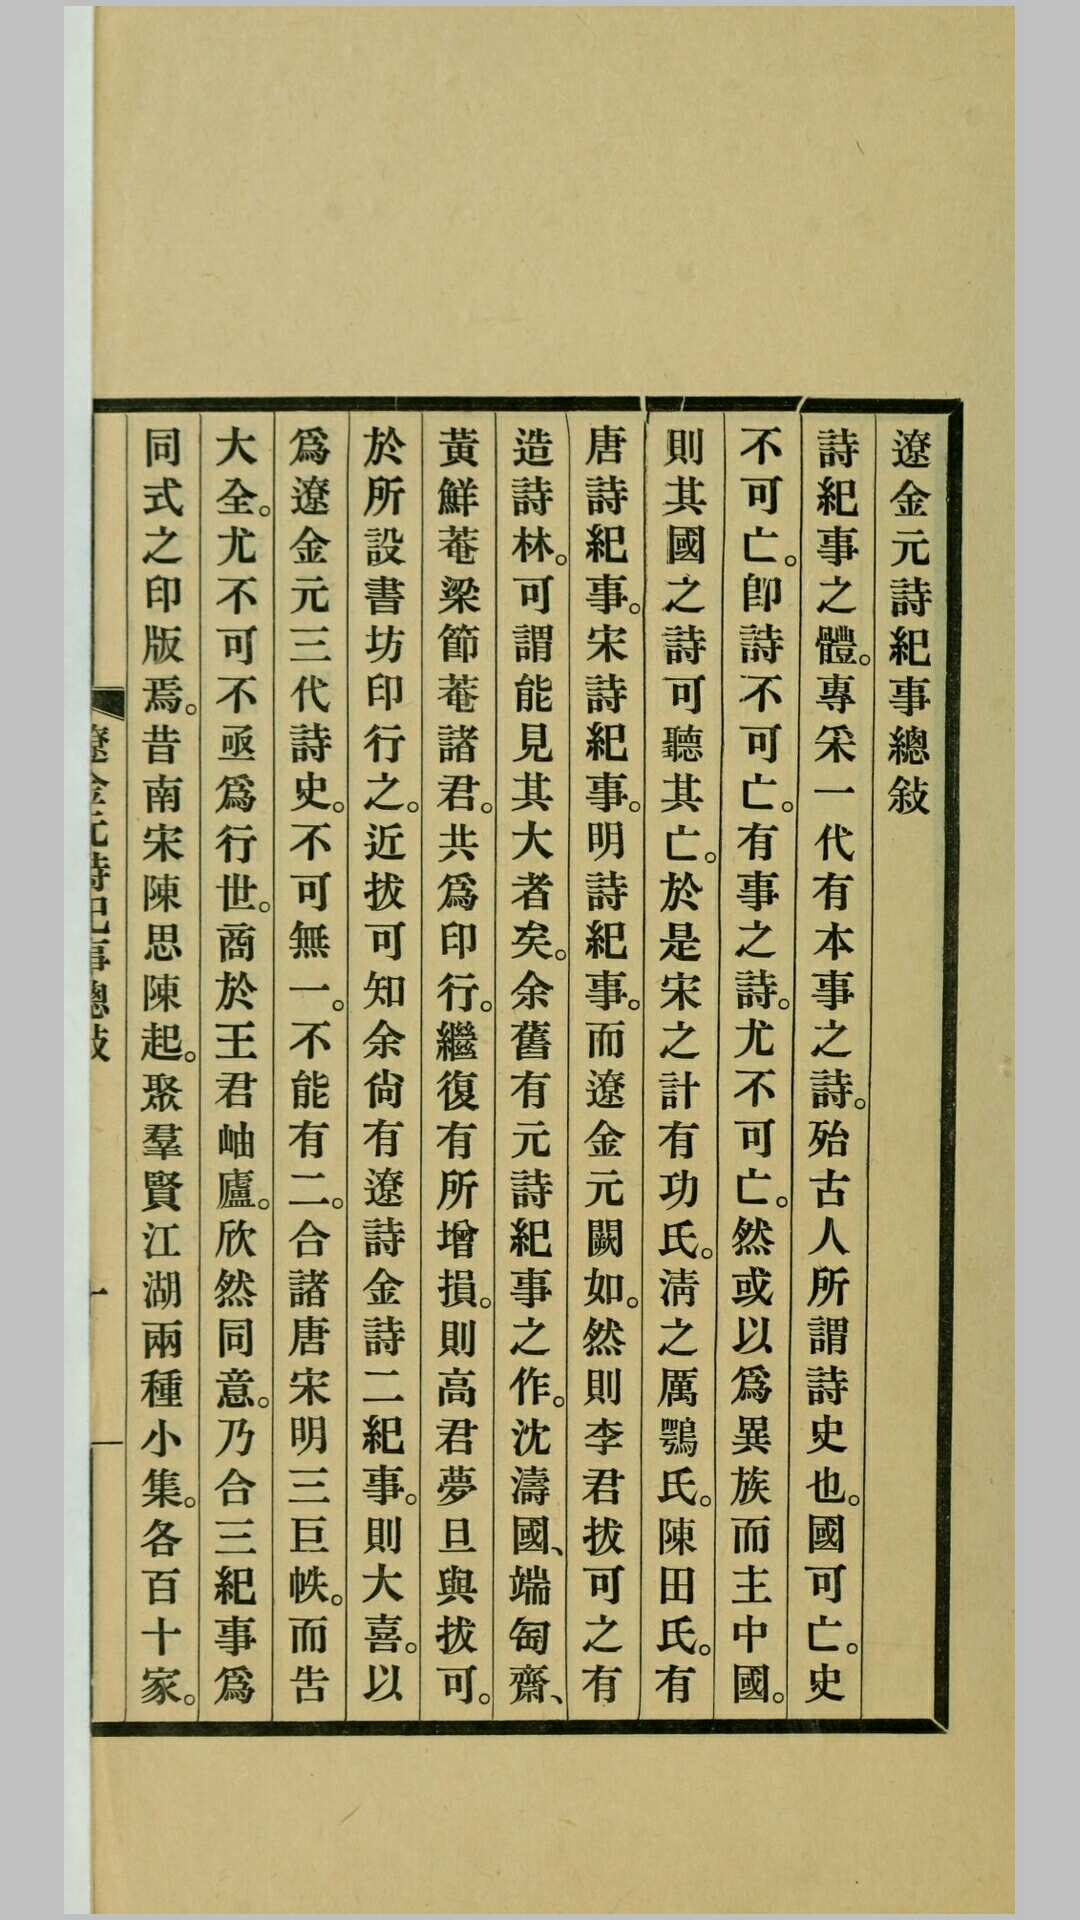 遼金元詩紀事總敍
詩紀事之體。專采一代有本事之詩。殆古人所謂詩史也。國可亡。史
不可亡。卽詩不可亡。有事之詩。尤不可亡。然或以爲異族而主中國。
則其國之詩可聽其亡。於是宋之計有功氏。淸之厲鶚氏。陳田氏。有
唐詩紀事。宋詩紀事。明詩紀事。而遼金元闕如。然則李君拔可之有
造詩林。可謂能見其大者矣。余舊有元詩紀事之作。沈濤國、端匋齋、
黃鮮菴梁節菴諸君。共爲印行。繼復有所增損。則高君夢旦與拔可。
於所設書坊印行之。近拔可知余尙有遼詩金詩二紀事。則大喜。以
爲遼金元三代詩史。不可無一。不能有二。合諸唐宋明三巨帙。而告
大全。尤不可不亟爲行世。商於王君岫廬。欣然同意。乃合三紀事爲
同式之印版焉。昔南宋陳思陳起。聚羣賢江湖兩種小集。各百十家。
遼金元詩紀事總敍
一